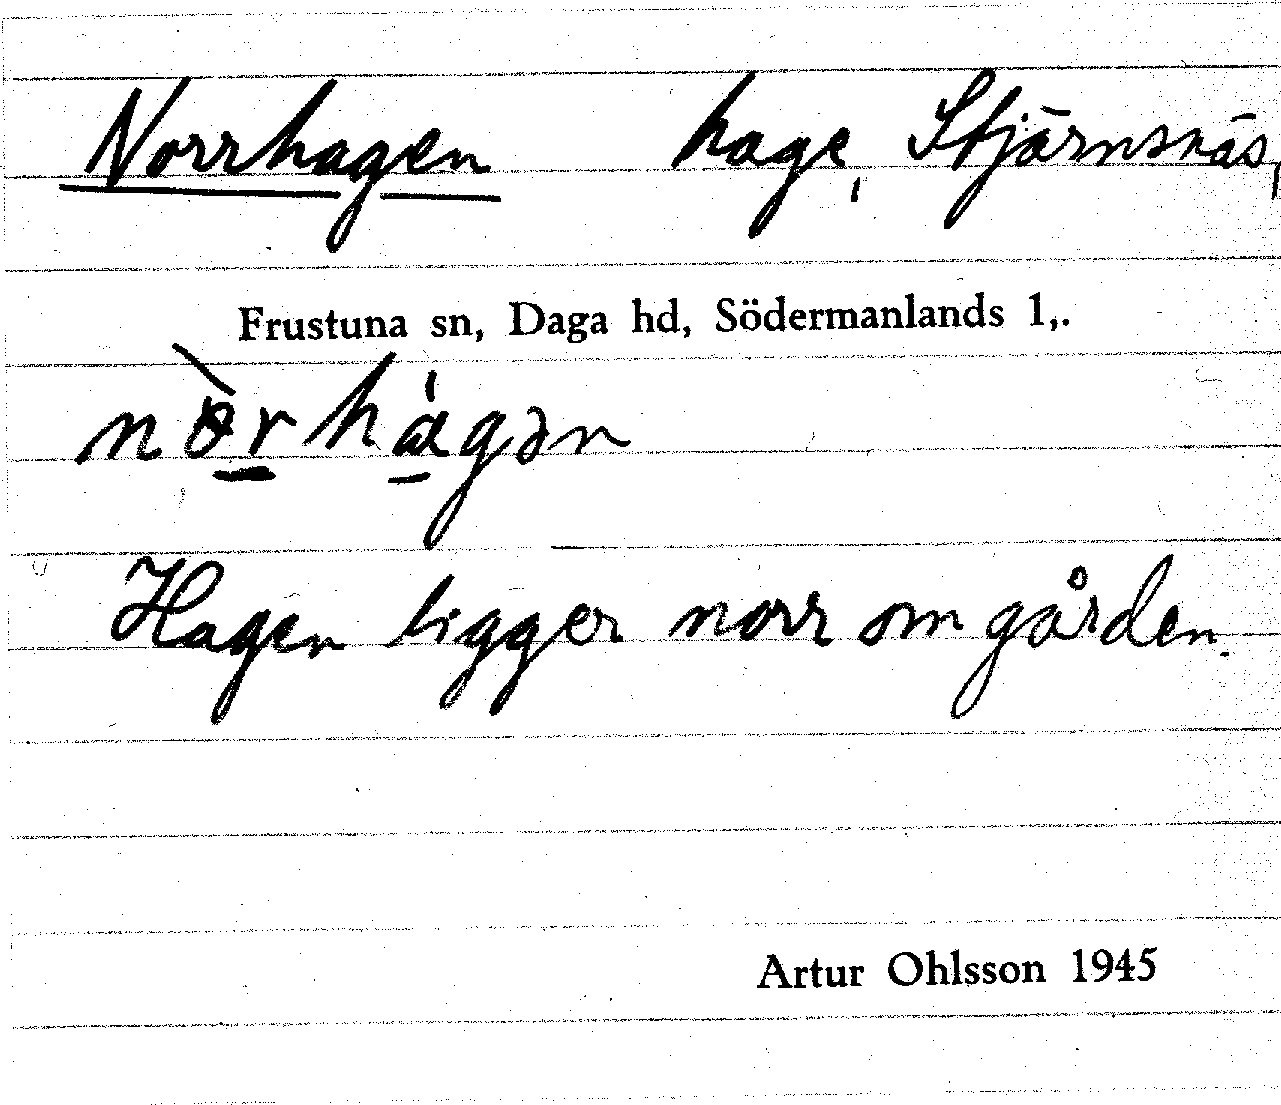 Norrhagen hage, Stjärnsnäs,
Frustuna sn, Daga hd, Södermanlands l,.
nòrhágən
Hagen ligger norr om gården.
Artur Ohlsson 1945